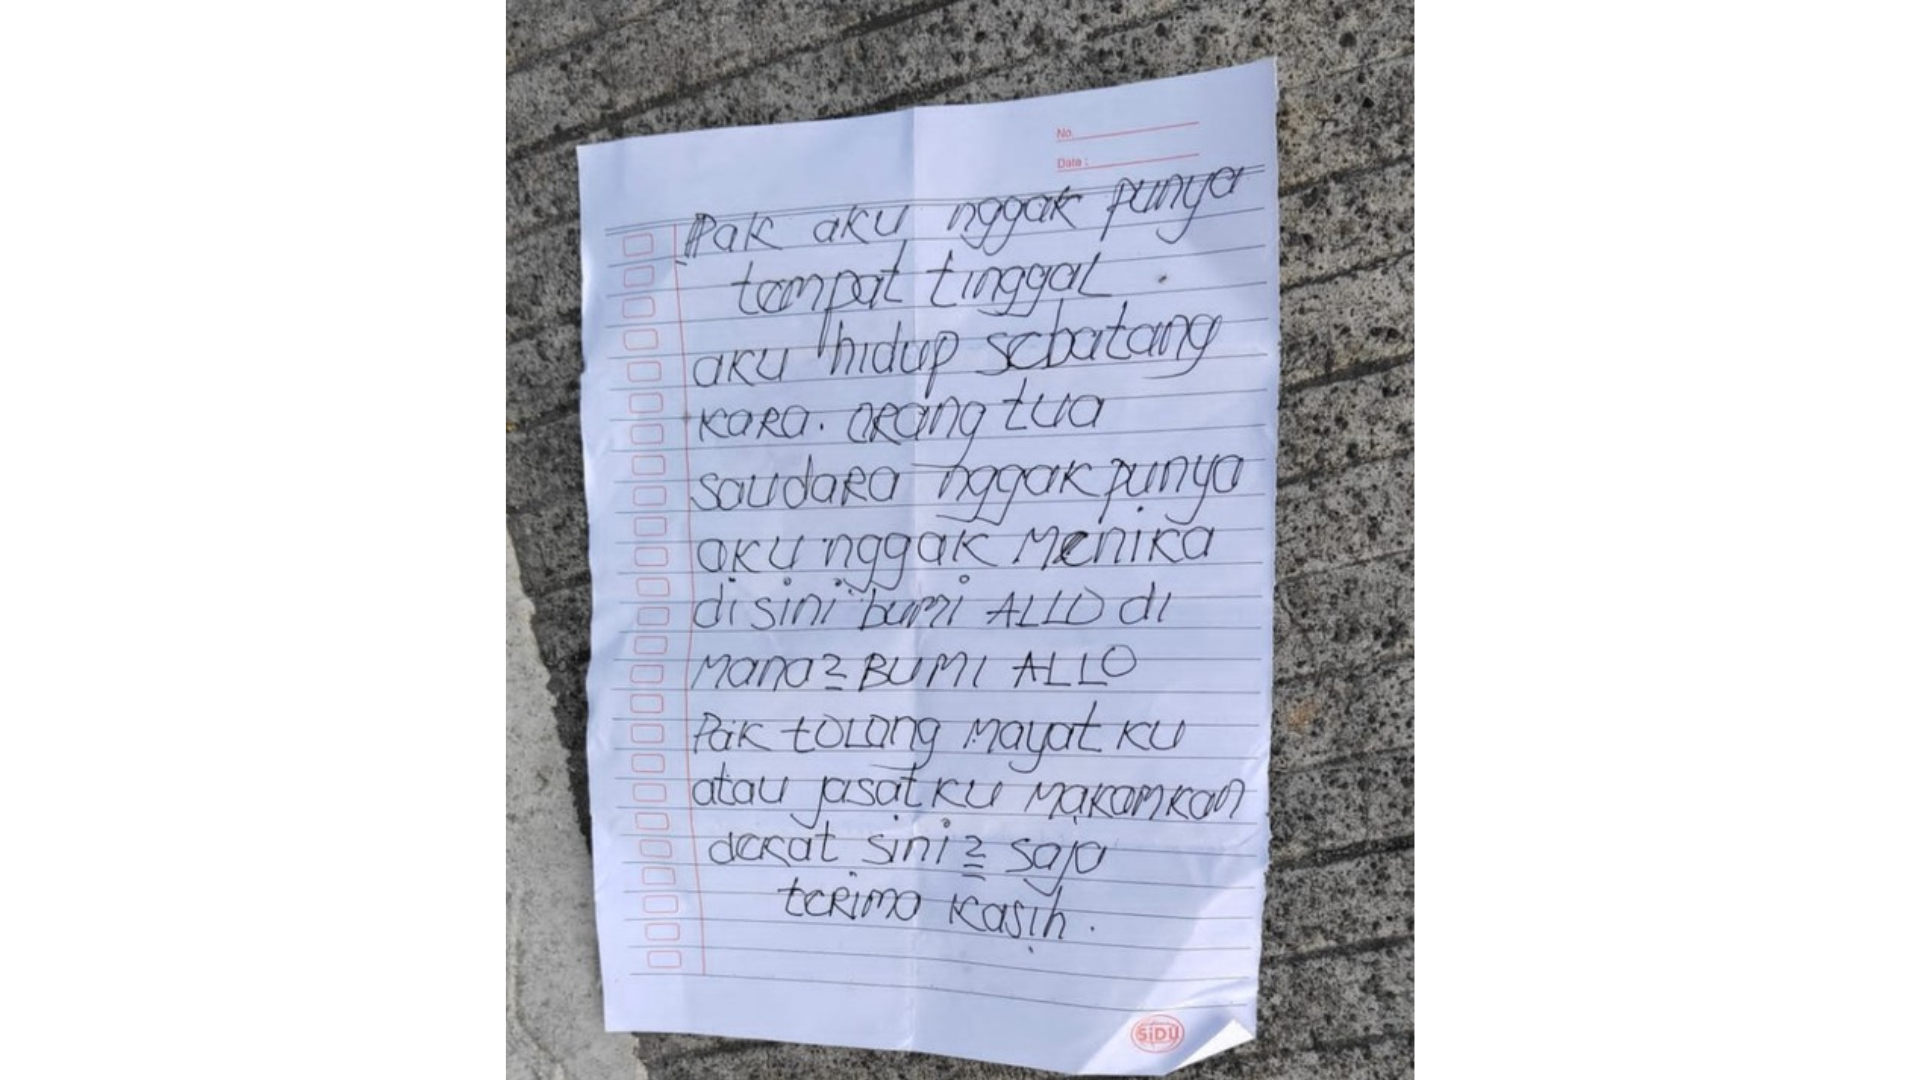 No.
Date :
Pak aku nggak punya
tempat tinggal
aku hidup sebatang
kara. orang tua
saudara nggak punya
aku nggak menika
disini bumi ALLO di
mana2 BUMI ALLO
Pak tolong mayat ku
atau jasatku makamkan
dekat sini2 saja
terima kasih.
SiDU